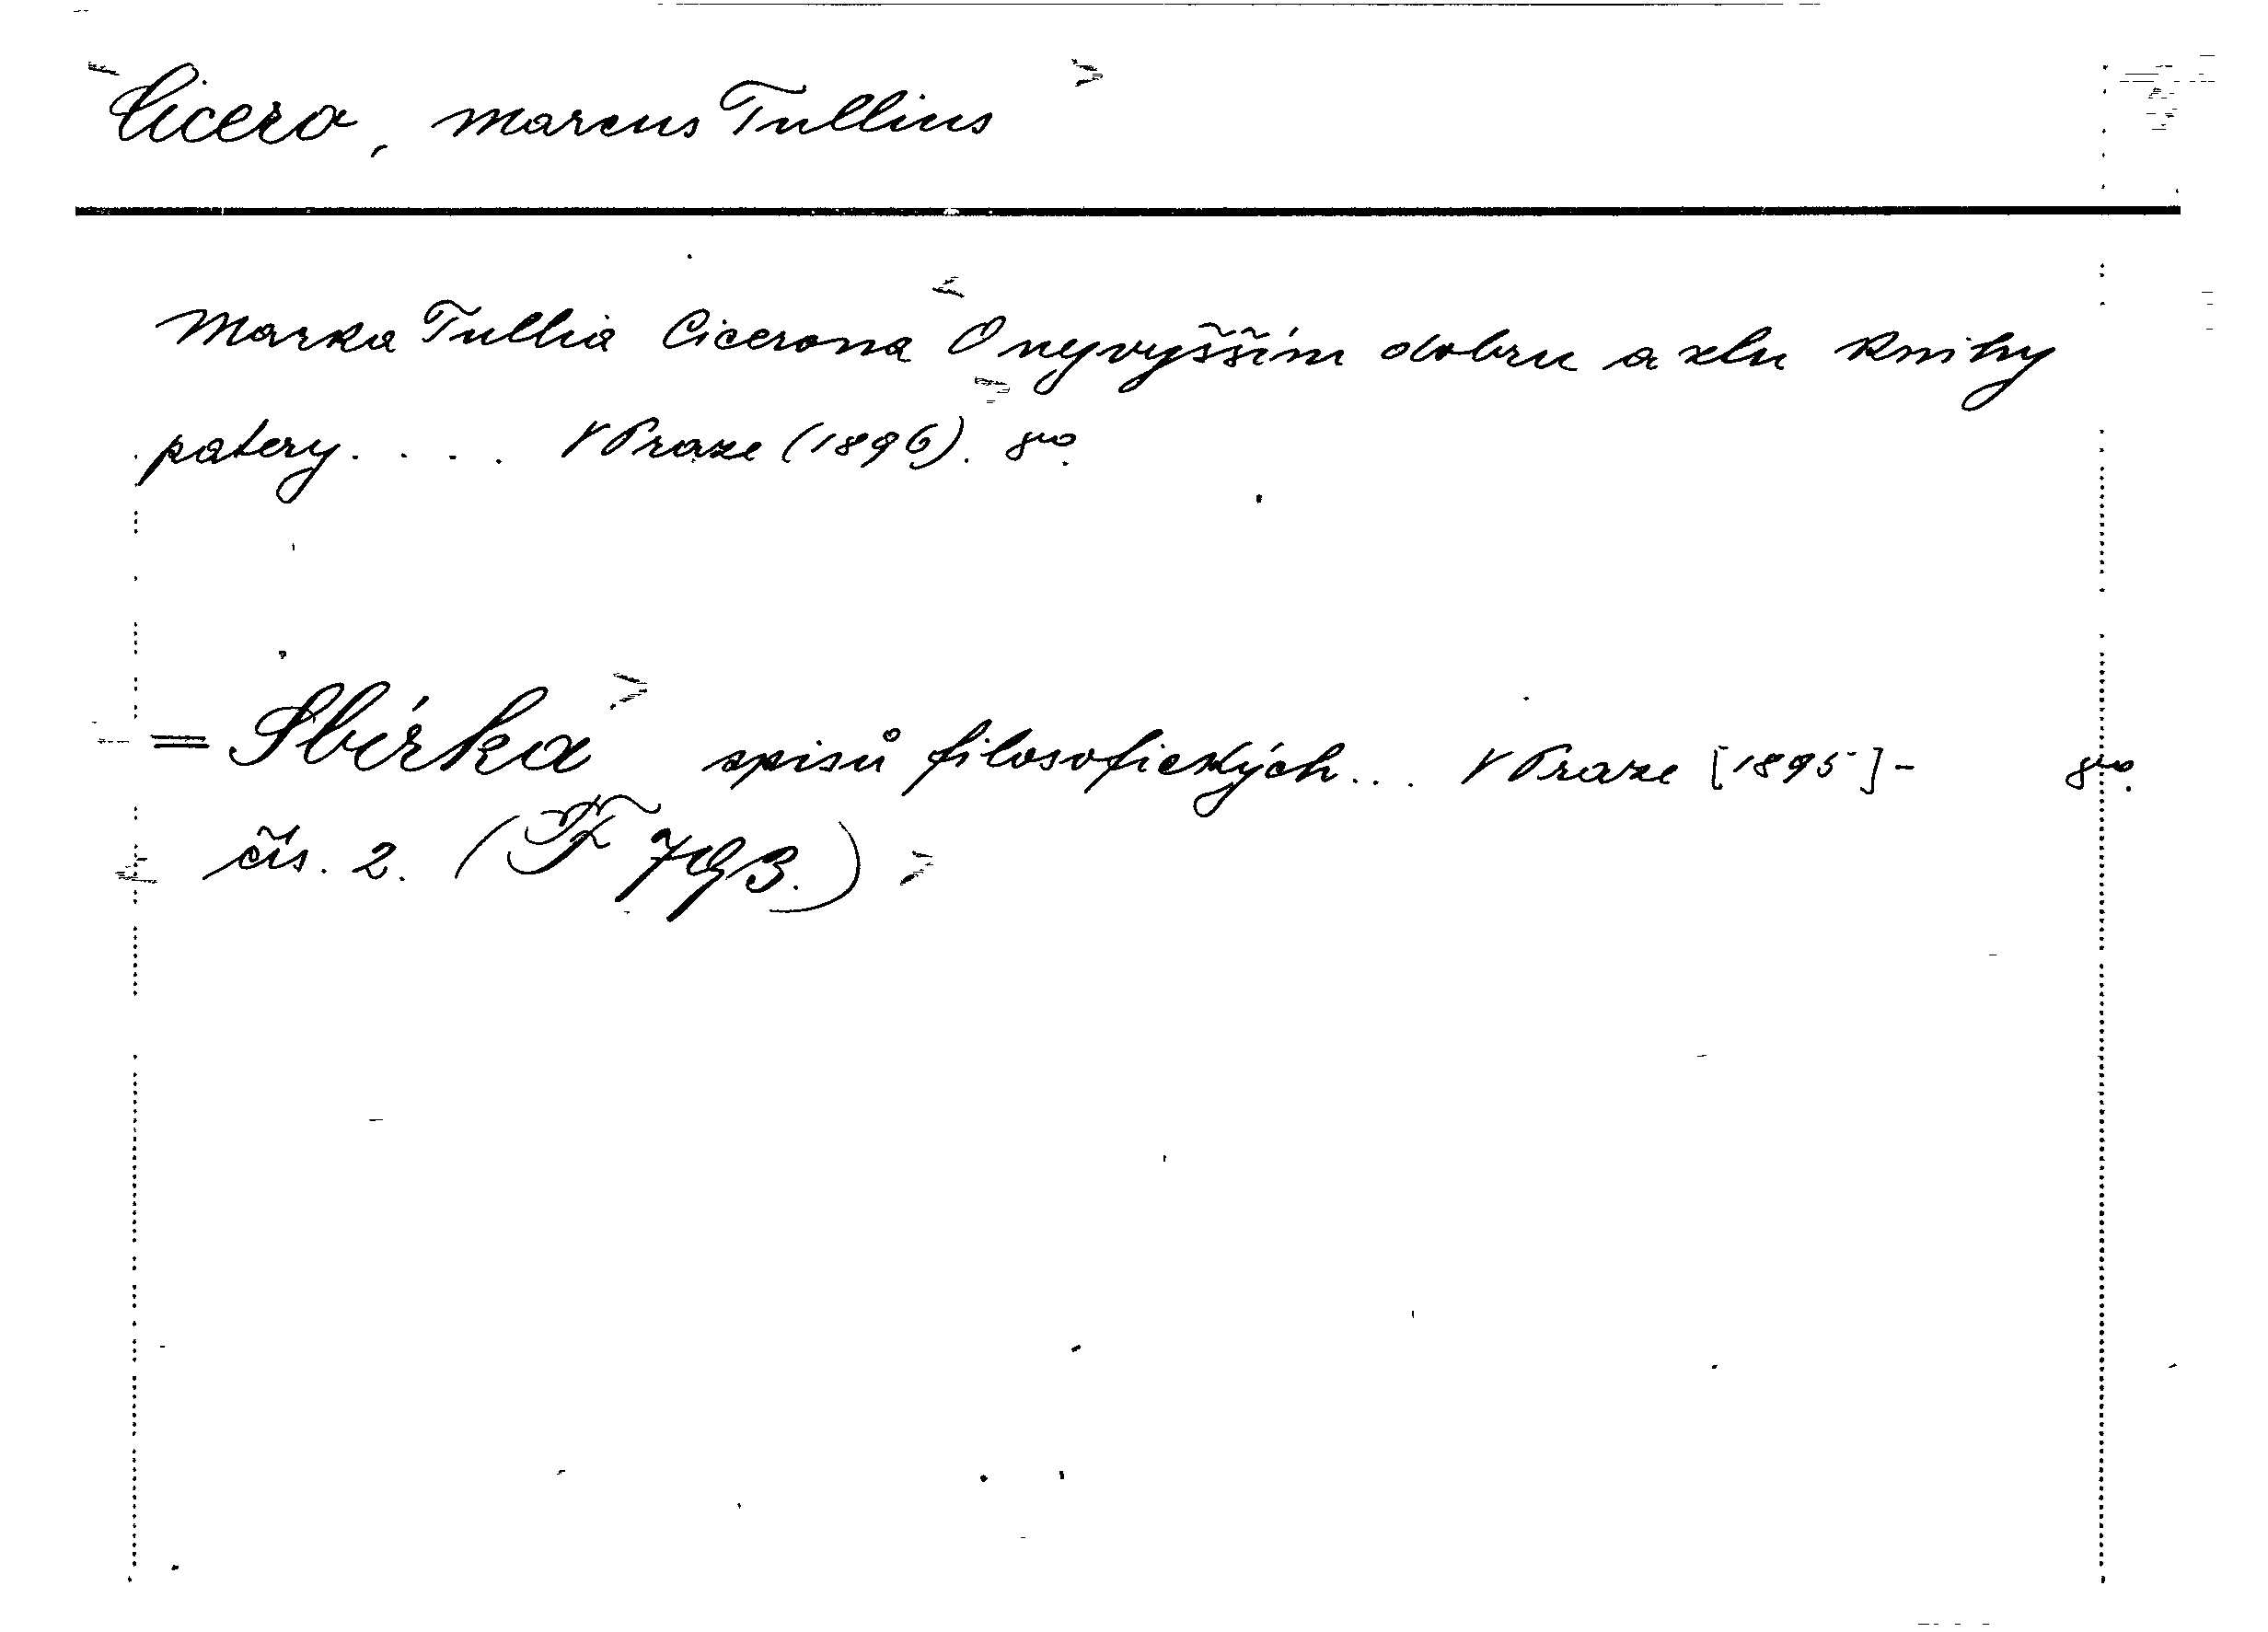 Cicero, Marcus Tullius
Marka Tullia Cicerona O nejvyšším dobru a zlu knihy
patery.... V Praze (1896). 8vo.
= Sbírka spisů filosofických... V Praze [1895]- 8vo.
čís. 2. (F 793.)